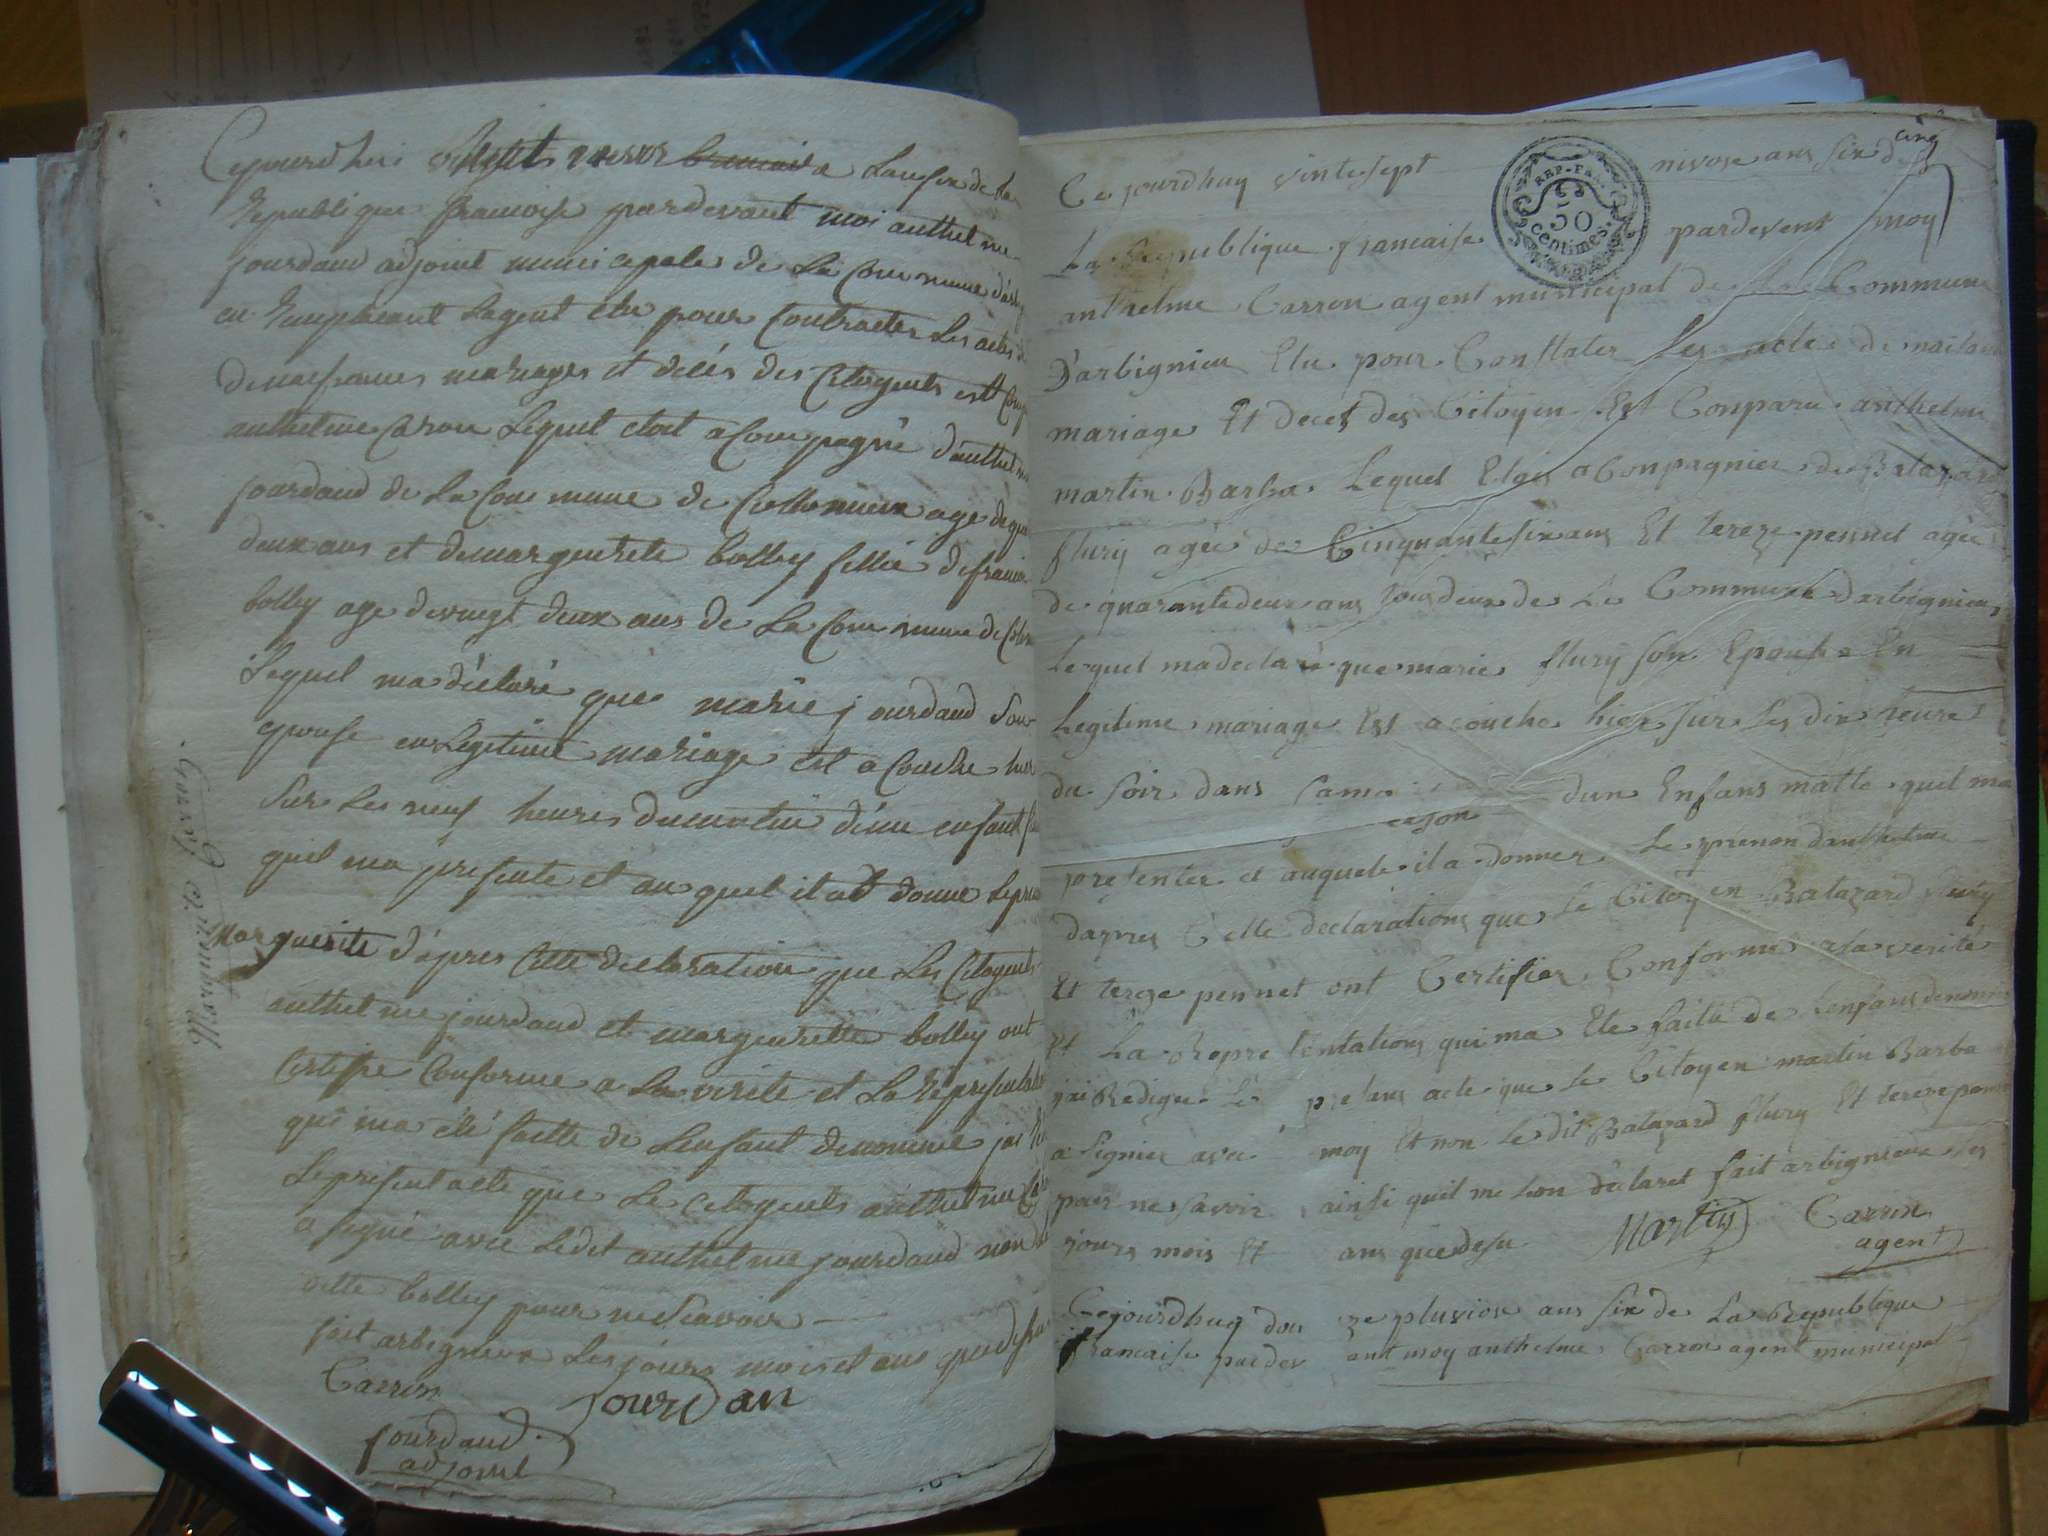 Cejourdhui nivos a Lansix de la
Republique francoise pardevant moi anthelme
jourdand adjoint municipale de La Commune d'arbig
en Remplacent Lagent elu pour Contracter Les actes de
denaissances mariages et decès des Citoyents est Comp
anthelme Caron Lequel etoit acompagné d'anthelme
jourdand de La Commune de Collomieux age de qua
deux ans et demarguerite bolley fellie defranco
bolley age devingt deux ans de La Commune de Colom
Lequel ma déclaré que marie jourdand Son
epouse en Legitime mariage est acouche hier
sur Les neuf heures dumatin d'un enfant f
quil ma presente et au quel il at donne Lepren
Marguerite d'épres Cette declaration que Les Citoyents
anthelme jourdand et marguerite bolley ont
Certiffie Conforme a La verite et La Representation
qui ma été faitte de Lenfant denomme jai Re
Lepresent acte que Le Citoyents anthelme Ca
a signé avec Ledit anthelme jourdand non la
ditte bolley pour ne Scavoir
fait arbignieux Lesjours mois et ans quedesus
Carron Jourdan
jourdand
adjoint
Marguerite Carron
cinq
Ce jourdhuy vintesept nivose ans six de
REP. FRA. 50 centimes
La Republique francaise pardevent moy
anthelme Carron agent municipal de La Commune
D'arbignieu Elu pour Constater Les acte de naisan
mariage Et deces des Citoyen Est Conparu anthelme
martin Barba Lequel Etois aConpagnier de Batazard
flury agée de Cinquantesix ans Et tereze pennet agée
de quarantedeux ans tousdeux de La Commune Darbignieu
Lequel madeclaré que marie flury son Epouse En
Legitime mariage Est acouche hier sur Les dix heure
du soir dans Sama dun Enfans malle quil ma
eson
presenter et auquele il a donner Le prenon danthelme
dapres Celle declarations que Le Citoyen Batazard flury
Et tereze pennet ont Certifier Conforme a la verité
Et La Representations qui ma Ete faite de Lenfans denomm
jai Rediger Le presans acte que Le Citoyen martin Barba
a Signier avec moy Et non Le dit Batazard flury Et tereze penn
pour ne savoir ainsi quil me Lon déclaret fait arbignieux Les
jours mois Et ans quedesu Martin Carron
agent
Cejourdhuy douze pluviose ans six de La Republique
francaise pardevant moy anthelme Carron agent municipal